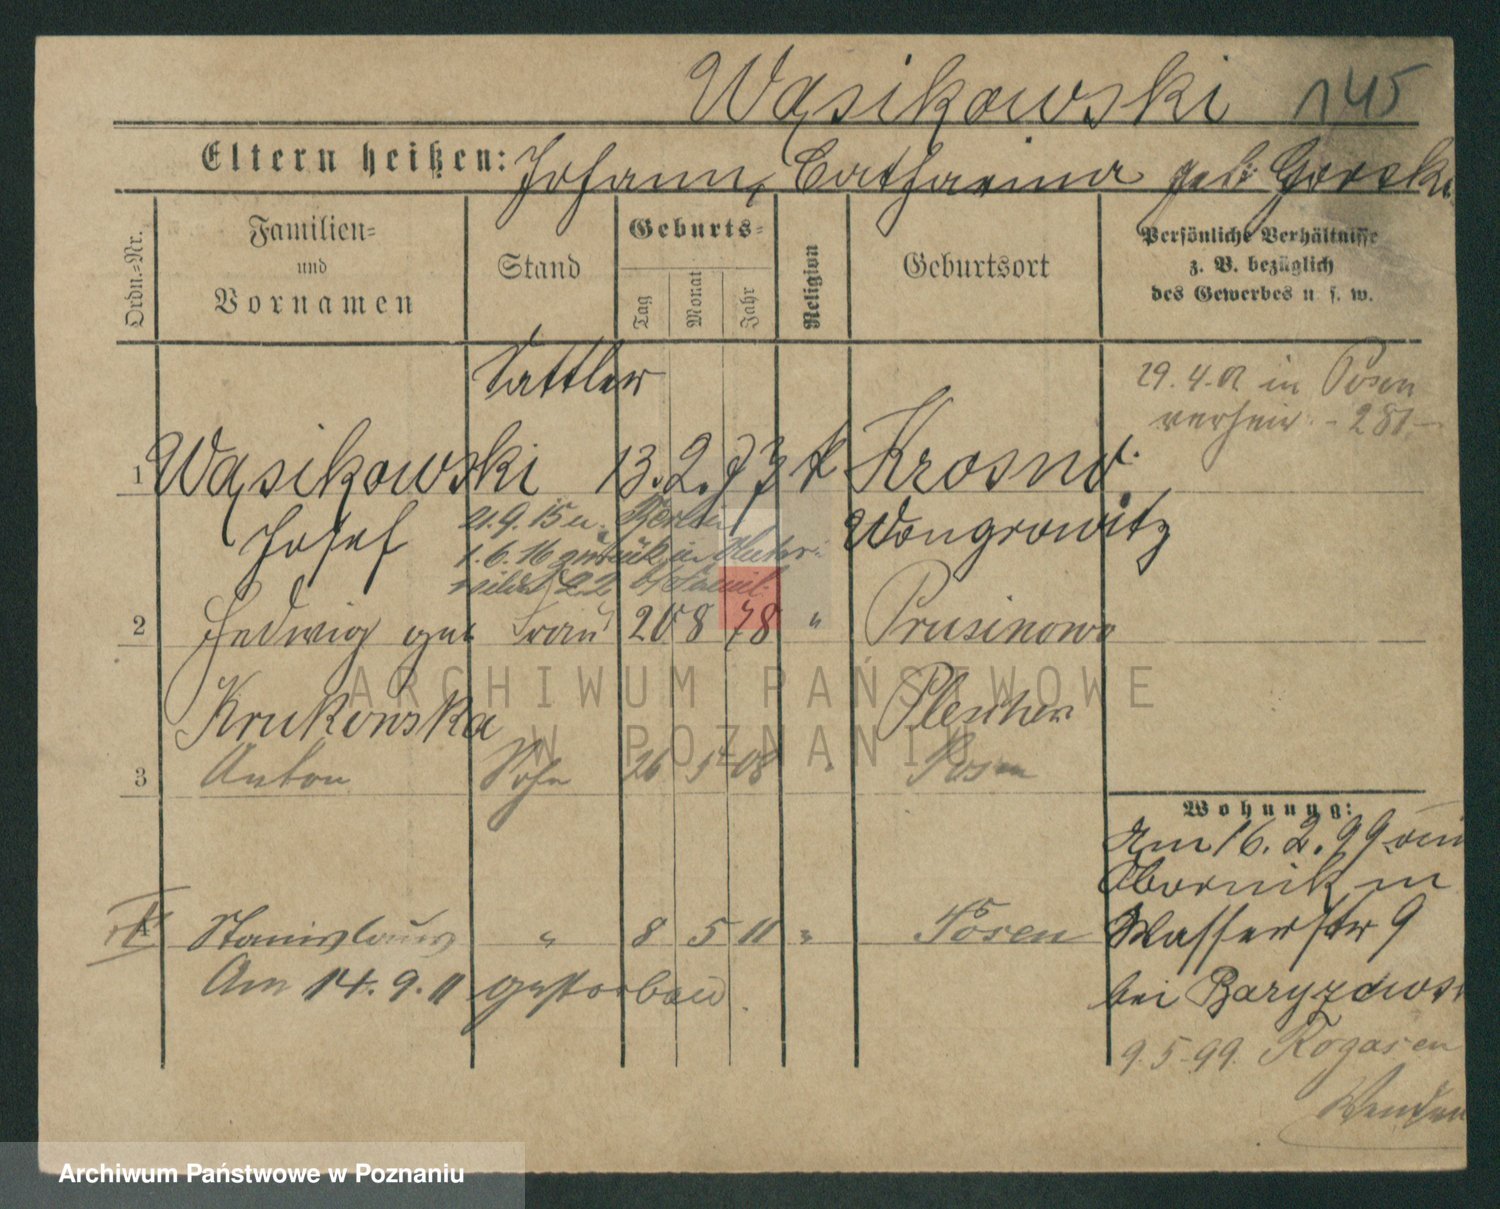 Wąsikowski 145
Eltern heißen: Johann, Catharina geb. Gorska
Ordn.=Nr.
Familien=
und
Vornamen
Stand
Geburts=
Tag
Monat
Jahr
Religion
Geburtsort
Persönliche Verhältnisse
z. B. bezüglich
des Gewerbes u. s. w.
Sattler
29.4.02 in Posen
verheir. - 281.-
1 Wąsikowski 13. 2. 73 k Krosno
Josef
21.9.15 n. Berlin
1.6.16 zurück in
Wongrowitz
2 Hedwig geb Frau 20 8 78 " Prusinowo
Krukowska
Pleschen
3 Anton Sohn 26 5 08 " Posen
Wohnung:
Am 16. 2. 99 von
Obornik in
4 Stanislaus " 8 5 11 " Posen
Wasserstr 9
Am 14. 9. 11 gestorben.
bei
9.5.99. Rogasen
ARCHIWUM PAŃSTWOWE
W POZNANIU
Archiwum Państwowe w Poznaniu